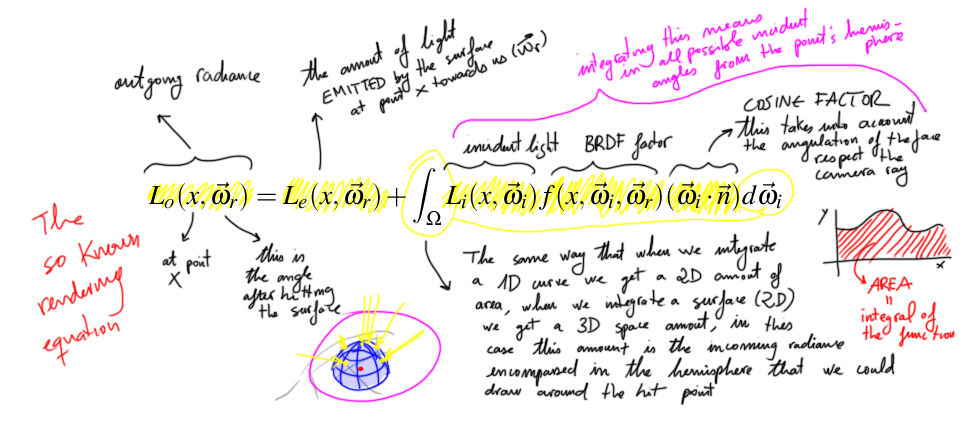 outgoing radiance
the amount of light
EMITTED by the surface
at point x towards us (w⃗r)
integrating this means
in all possible incident
angles from the point's hemis-
phere
incident light
BRDF factor
COSINE FACTOR
this takes into account
the angulation of the face
respect the
camera ray
Lₒ(x, ω⃗ᵣ) = Lₑ(x, ω⃗ᵣ) + ∫_Ω Lᵢ(x, ω⃗ᵢ) f(x, ω⃗ᵢ, ω⃗ᵣ) (ω⃗ᵢ · n⃗) dω⃗ᵢ
The
so known
rendering
equation
at point
x
this is
the angle
after hitting
the surface
The same way that when we integrate
a 1D curve we get a 2D amount of
area, when we integrate a surface (2D)
we get a 3D space amount, in this
case this amount is the incoming radiance
encompassed in the hemisphere that we could
draw around the hit point
y
x
AREA
=
integral of
the function